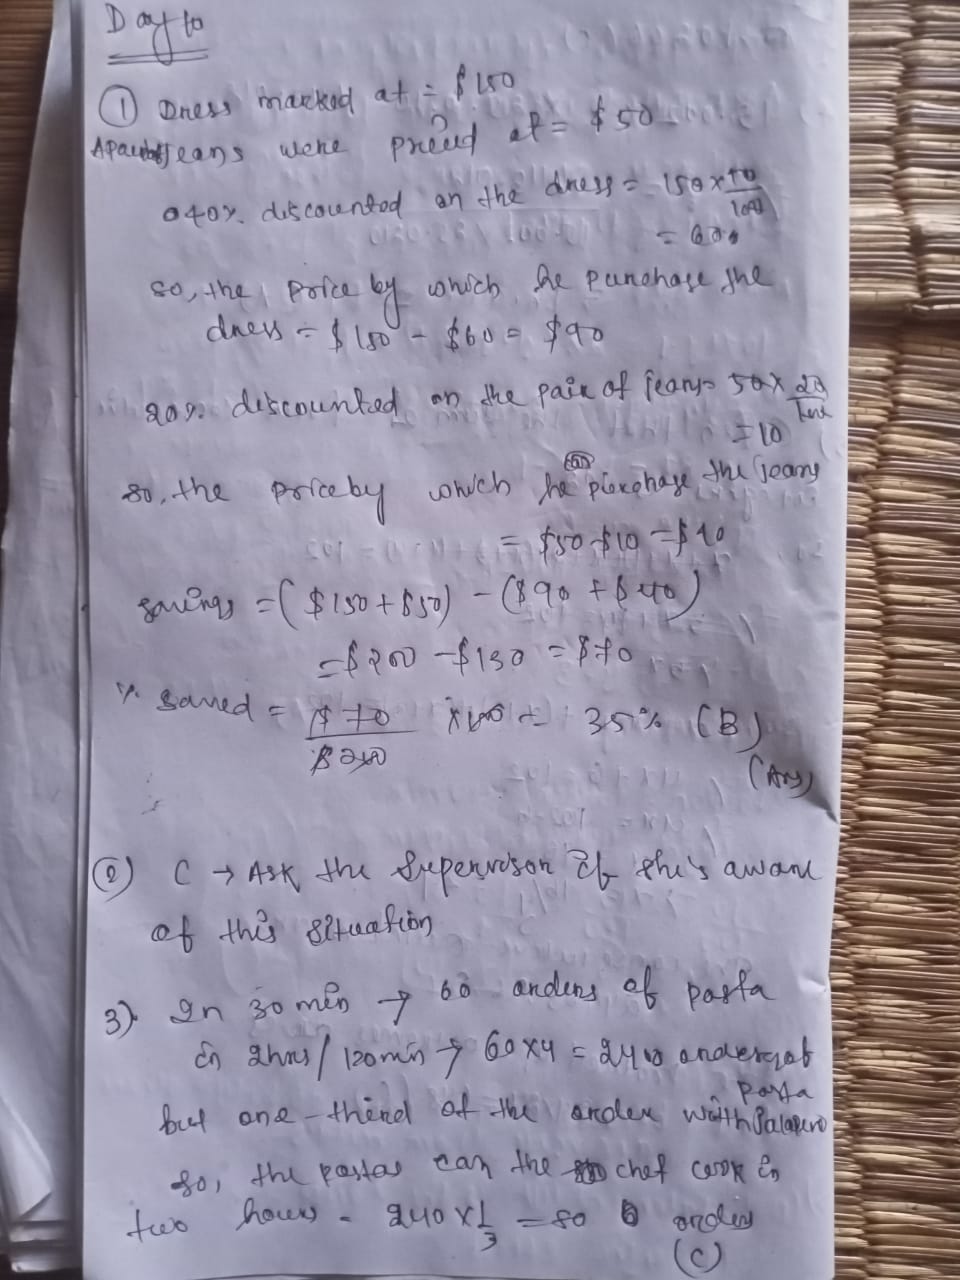 Day 10
① Dress marked at = $150
A pair of Jeans were priced at = $50
a 40% discounted on the dress = 150 x 40/100
= 60
so, the price by which he purchase the
dress = $150 - $60 = $90
20% discounted on the pair of jeans 50 x 20/100
= 10
so, the price by which he purchase the jeans
= $50 - $10 = $40
savings = ($150 + $50) - ($90 + $40)
= $200 - $130 = $70
% saved = $70/$200 x 100 = 35% (B)
(Ans)
② C → Ask the Supervisor if she's aware
of this situation
3) In 30 min → 60 orders of pasta
in 2hrs/120min → 60 x 4 = 240 orders of
pasta
but one-third of the order with Jalapeno
so, the pastas can the chef cook in
two hours = 240 x 1/3 = 80 orders
(C)